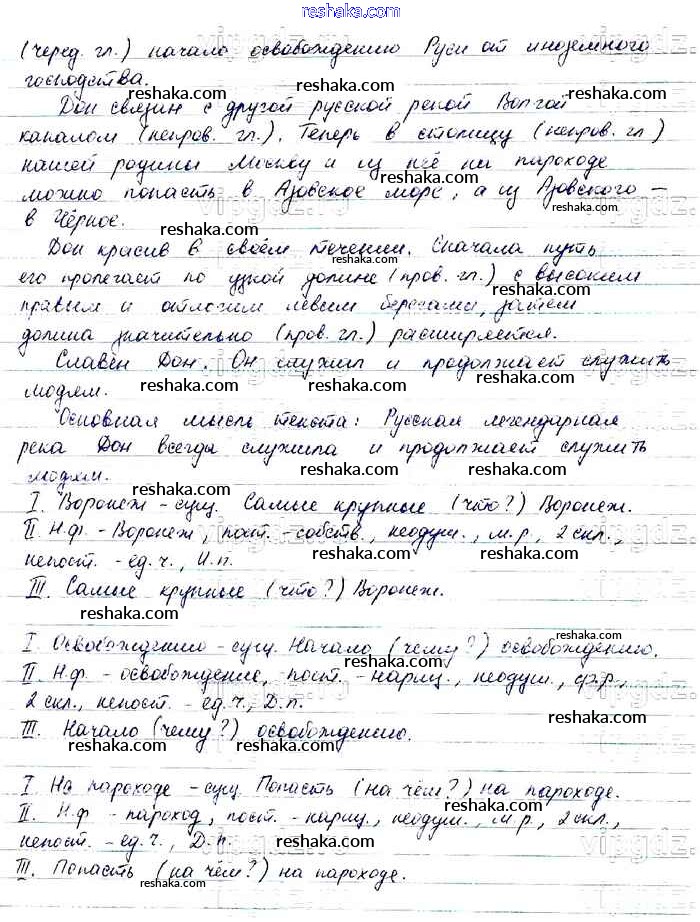 reshaka.com
(черед. гл.) начало освобождению Руси от иноземного
господства.
Дон связан с другой русской рекой Волгой
каналом (непров. гл.). Теперь в столицу (непров. гл)
нашей родины Москву и из неё на пароходе
можно попасть в Азовское море, а из Азовского –
в Чёрное.
Дон красив в своём течении. Сначала путь
его пролегает по узкой долине (пров. гл.) с высоким
правым и отлогим левым берегами, затем
долина значительно (пров. гл.) расширяется.
Славен Дон. Он служил и продолжает служить
людям.
Основная мысль текста: Русская легендарная
река Дон всегда служила и продолжает служить
людям.
I. Воронеж – сущ. Самые крупные (что?) Воронеж.
II. Н.ф. – Воронеж, пост. – собств., неодуш., м.р., 2 скл.,
непост. – ед.ч., И.п.
III. Самые крупные (что?) Воронеж.
I. Освобождению – сущ. Начало (чему?) освобождению.
II. Н.ф. – освобождение, пост. – нариц., неодуш., ср.р.,
2 скл., непост. – ед.ч., Д.п.
III. Начало (чему?) освобождению.
I. На пароходе – сущ. Попасть (на чём?) на пароходе.
II. Н.ф – пароход, пост. – нариц., неодуш., м.р., 2 скл.,
непост. – ед.ч., Д.п.
III. Попасть (на чём?) на пароходе.
reshaka.com